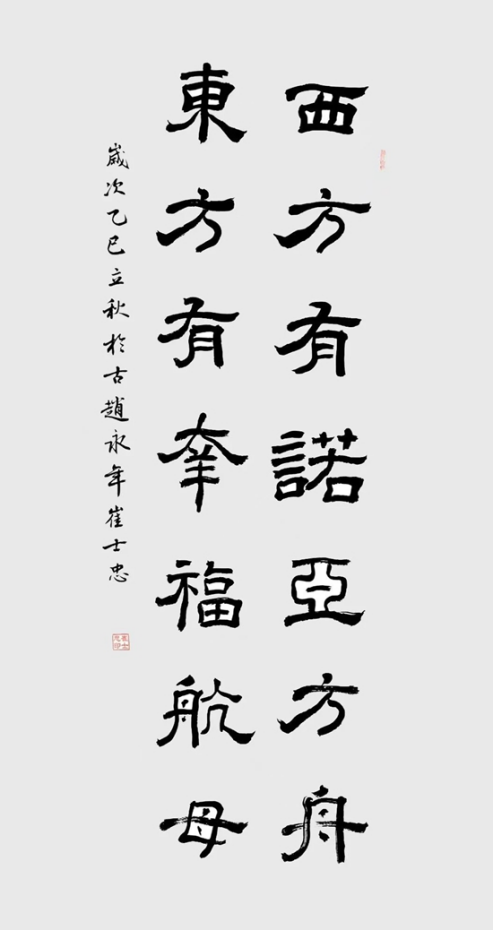 西方有諾亞方舟
東方有幸福航母
歲次乙巳立秋於古趙永年崔士忠